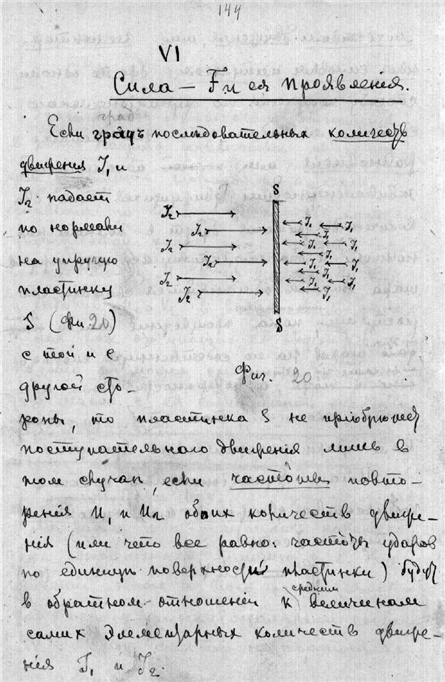 144
VI
Сила — F и ея проявленія.
Если градъ последовательныхъ количествъ
движенія J₁ и
J₂ падаетъ
по нормали
на упругую
пластинку
S (фиг. 20)
с той и с
другой сто-
роны, то пластинка S не пріобретет
поступательнаго движенія лишь в
том случаѣ, если частоты повто-
ренія n₁ и n₂ обоих количеств движе-
нія (или что все равно: частоты ударов
по единицѣ поверхности пластинки) будут
в обратном отношеніи к средним величинам
самих элементарных количеств движе-
нія J₁ и J₂.
S
J₂ J₂ J₂ J₂ J₂ J₂
J₁ J₁ J₁ J₁ J₁ J₁ J₁ J₁
S
Фиг. 20